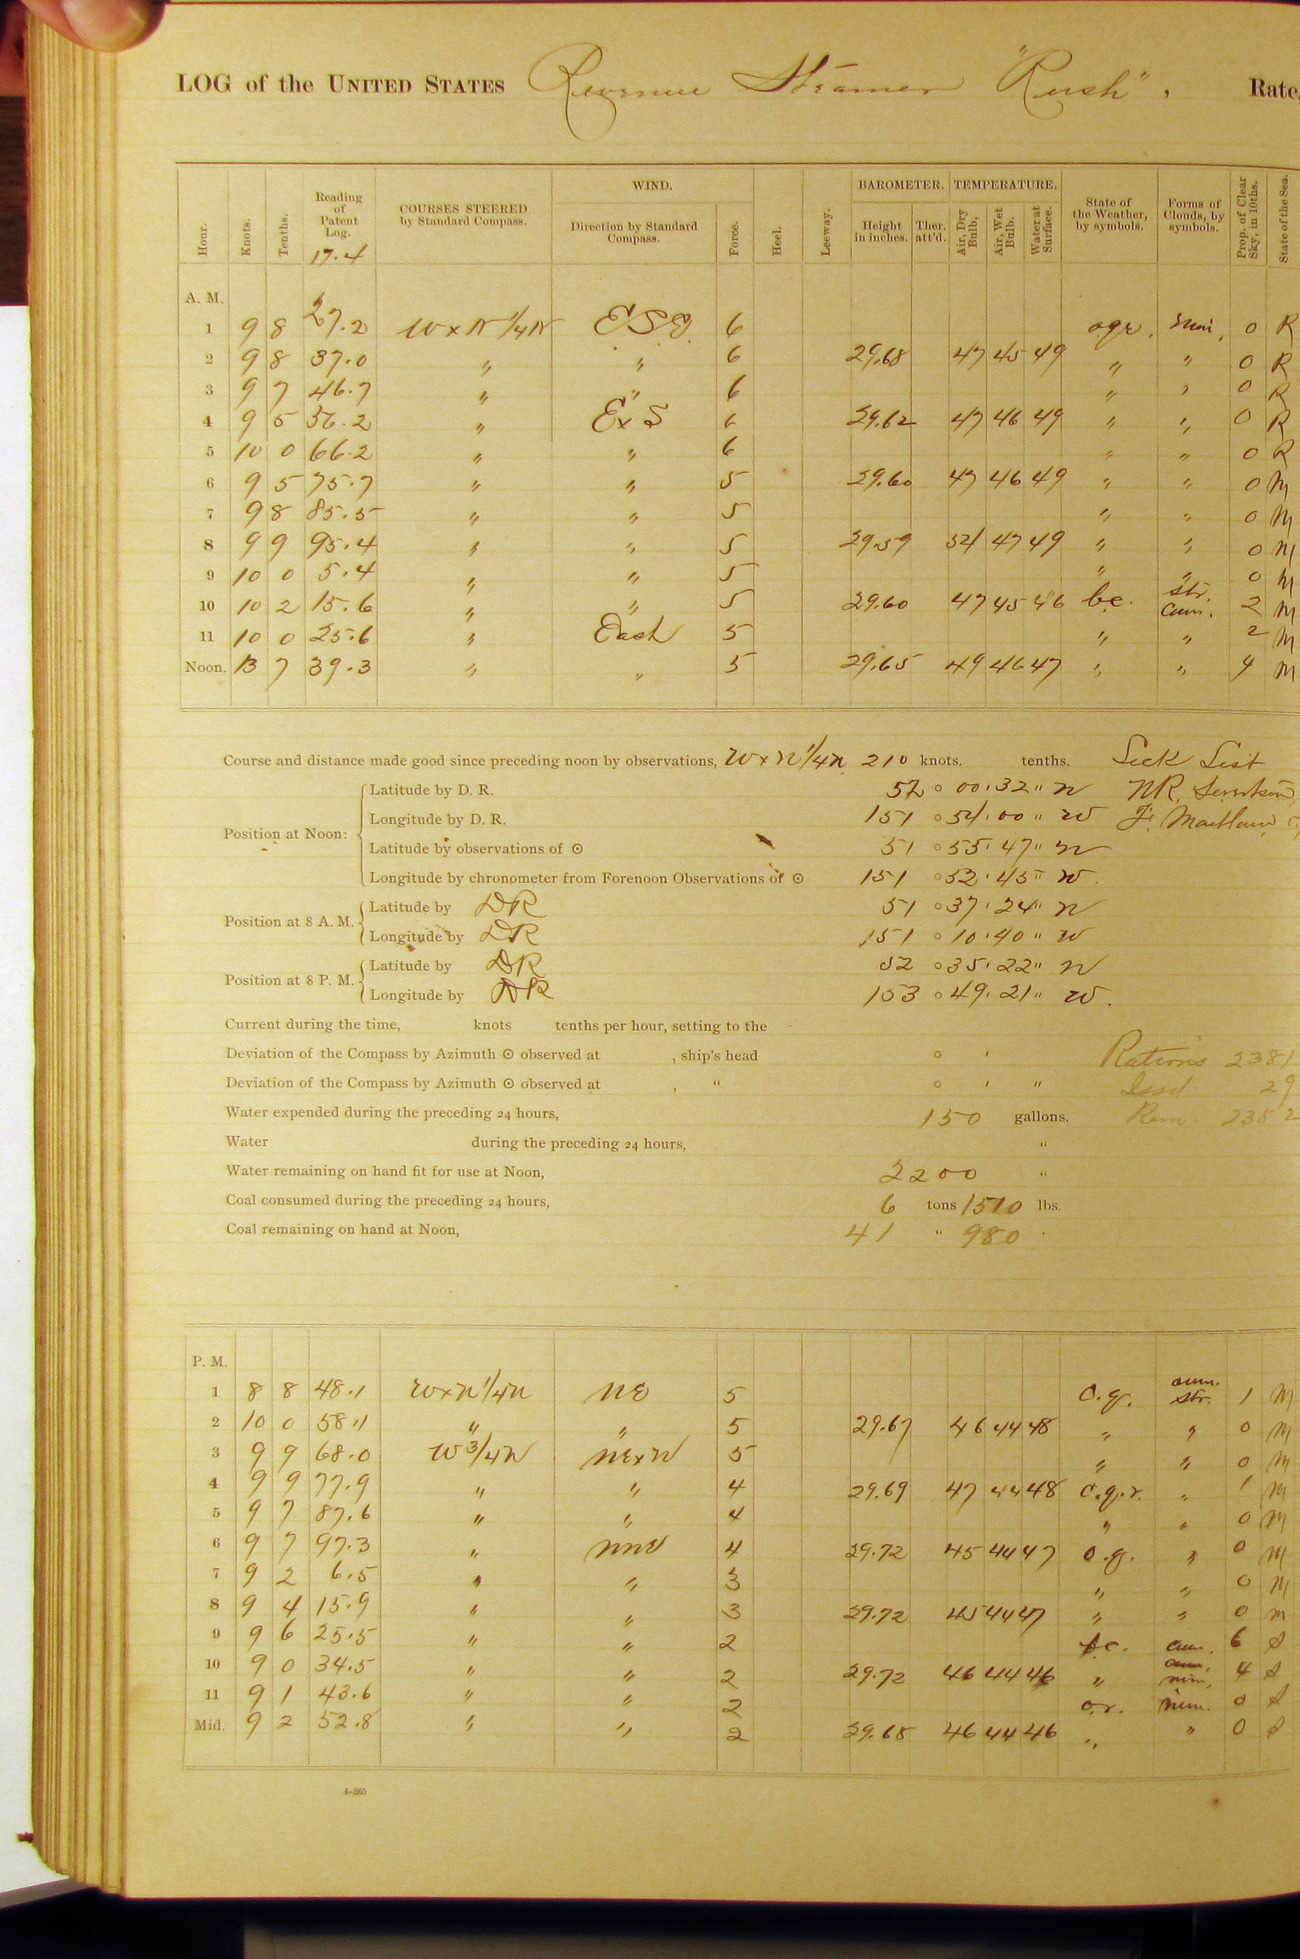 LOG of the UNITED STATES Revenue Steamer "Rush", Rate,
Hour. Knots. Tenths. Reading of Patent Log. 17.4 COURSES STEERED by Standard Compass. WIND. Direction by Standard Compass. Force. Heel. Leeway. BAROMETER. Height in inches. Ther. att'd. TEMPERATURE. Air, Dry Bulb, Air, Wet Bulb. Water at Surface. State of the Weather, by symbols. Forms of Clouds, by symbols. Prop. of Clear Sky, in 10ths. State of the Sea.
A. M.
1 9 8 27.2 W x N 1/4 N ESE 6 ogr. nim. 0 R
2 9 8 37.0 " " 6 29.68 47 45 49 " " 0 R
3 9 7 46.7 " " 6 " " 0 R
4 9 5 56.2 " E x S 6 29.62 47 46 49 " " 0 R
5 10 0 66.2 " " 6 " " 0 R
6 9 5 75.7 " " 5 29.60 47 46 49 " " 0 M
7 9 8 85.5 " " 5 " " 0 M
8 9 9 95.4 " " 5 29.59 47 49 " " 0 M
9 10 0 5.4 " " 5 " " 0 M
10 10 2 15.6 " " 5 29.60 47 45 46 b.c. str. cum. 2 M
11 10 0 25.6 " East 5 " " 2 M
Noon. 13 7 39.3 " " 5 29.65 49 46 47 " " 4 M
Course and distance made good since preceding noon by observations, W x N 1/4 N 210 knots. tenths. Sick List
Position at Noon:
Latitude by D. R. 52 ° 00 ' 32 " N N R.
Longitude by D. R. 151 ° 54 ' 00 " W F. Maitland
Latitude by observations of ⊙ 51 ° 55 ' 47 " N
Longitude by chronometer from Forenoon Observations of ⊙ 151 ° 52 ' 45 " W.
Position at 8 A. M.
Latitude by DR 51 ° 37 ' 24 " N
Longitude by DR 151 ° 10 ' 40 " W
Position at 8 P. M.
Latitude by DR 52 ° 35 ' 22 " N
Longitude by DR 153 ° 49 ' 21 " W.
Current during the time, knots tenths per hour, setting to the
Deviation of the Compass by Azimuth ⊙ observed at , ship's head ° ' Rations 2381
Deviation of the Compass by Azimuth ⊙ observed at , " ° ' " Issd 29
Water expended during the preceding 24 hours, 150 gallons. Rem. 2352
Water during the preceding 24 hours, "
Water remaining on hand fit for use at Noon, 2200 "
Coal consumed during the preceding 24 hours, 6 tons 1510 lbs.
Coal remaining on hand at Noon, 41 " 980
P. M.
1 8 8 48.1 W x N 1/4 N NE 5 c.g. cum. str. 1 M
2 10 0 58.1 " " 5 29.67 46 44 48 " " 0 M
3 9 9 68.0 W 3/4 N NE x N 5 " " 0 M
4 9 9 77.9 " " 4 29.69 47 44 48 c.g.r. " 1 M
5 9 7 87.6 " " 4 " " 0 M
6 9 7 97.3 " NNE 4 29.72 45 44 47 o.g. " 0 M
7 9 2 6.5 " " 3 " " 0 M
8 9 4 15.9 " " 3 29.72 45 44 47 " " 0 M
9 9 6 25.5 " " 2 b.c. cum. 6 S
10 9 0 34.5 " " 2 29.72 46 44 46 " cum. nim. 4 S
11 9 1 43.6 " " 2 o.r. nim. 0 S
Mid. 9 2 52.8 " " 2 29.68 46 44 46 " " 0 S
4-265